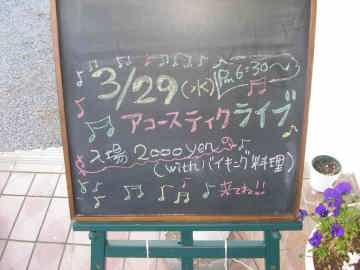 3/29(水) Pm6:30〜
アコースティックライブ
入場 2000yen
(withバイキング料理)
来てね!!